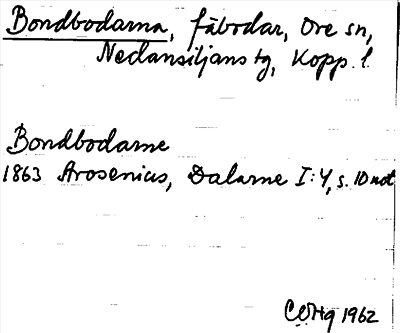 Bondbodarna, fäbodar, Ore sn,
Nedansiljans tg, Kopp. l.
Bondbodarne
1863 Arosenius, Dalarne I:4, s. 10 not
1962